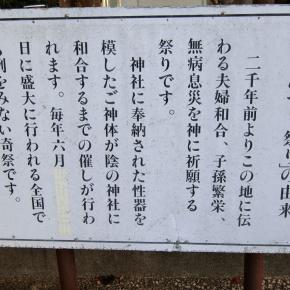 祭り」の由来
二千年前よりこの地に伝
わる夫婦和合、子孫繁栄、
無病息災を神に祈願する
祭りです。
神社に奉納された性器を
模したご神体が陰の神社に
和合するまでの催しが行わ
れます。毎年六月
日に盛大に行われる全国で
例をみない奇祭です。